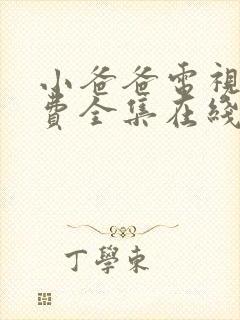 小爸爸電視
費全集在綫
丁學東